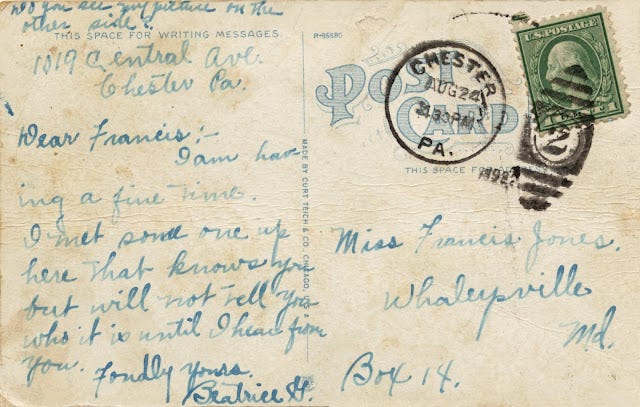 Do you see my picture on the
other side?
THIS SPACE FOR WRITING MESSAGES
1019 Central Ave.
Chester Pa.
Dear Francis:-
I am hav-
ing a fine time.
I met some one up
here that knows you
but will not tell you
who it is until I hear from
you. Fondly yours.
Beatrice H.
MADE BY CURT TEICH & CO., CHICAGO, U.S.A.
R-65580
POST
CARD
THIS SPACE FOR
CHESTER
AUG 24
PA.
U.S. POSTAGE
Miss Francis Jones.
Whaleysville
Md.
Box 14.